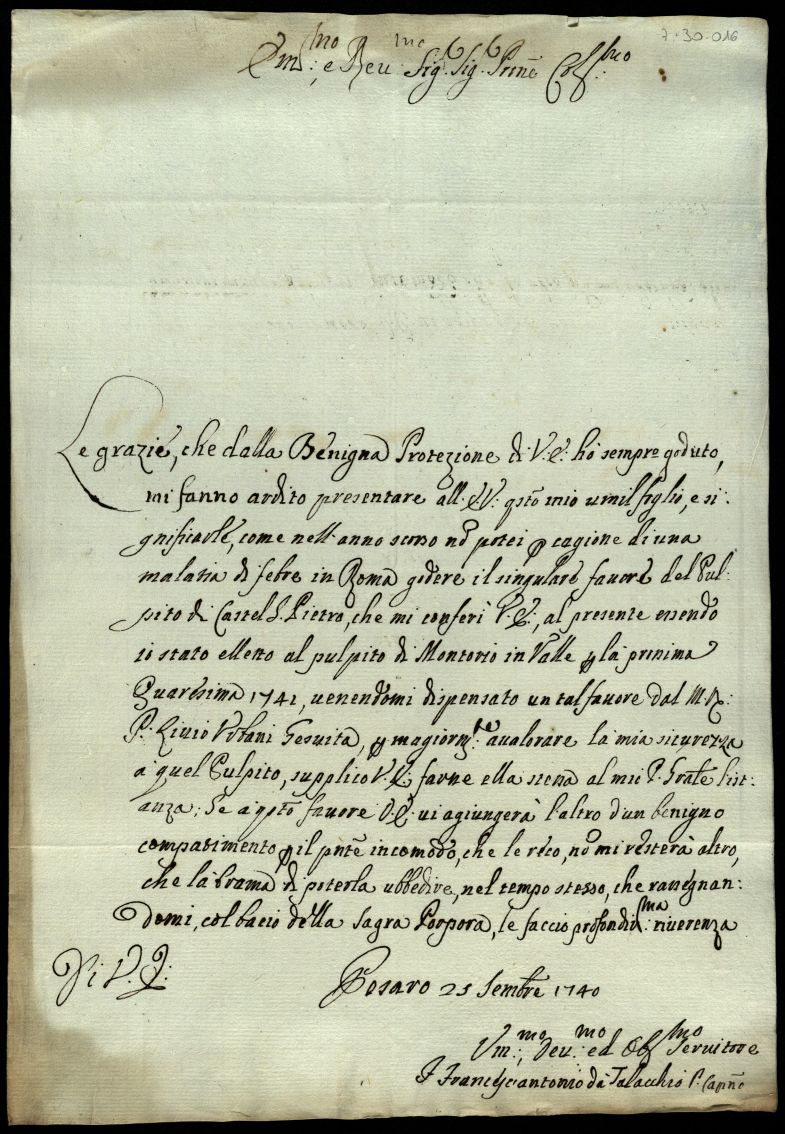 7-30-016
Em:mo e Reu:mo Sig.r Sig.r Prine Col:mo
Le grazie, che dalla Benigna Protezione di V:E: hò sempre goduto,
mi fanno ardito presentare all' E.V: qsto mio umil figlio, e si:
gnificarle, come nell'anno scorso nò potei p cagione di una
malatia di febre in Roma godere il singulare favore del Pul:
pito di Castel S. Pietro, che mi conferì V:E:, al presente essendo
io stato elletto al pulpito di Montorio in Valle p la prima
Quaresima 1741, uenendomi dispensato un tal favore dal M.R:
P: Liuio Vrbani Gesuita, p magiorm:te aualorare la mia sicurezza
à quel Pulpito, supplico V:E: farne ella stessa al mio P. Grale l'ist:
anza; Se à qsto favore V:E: ui agiungerà l'altro d'un benigno
compatimento p il pnte incomodo, che le reco, nò mi resterà altro,
che la brama di poterla ubbedire, nel tempo stesso, che rassegnan:
domi, col bacio della Sagra Porpora, le faccio profondis:ma riuerenza
Di V. E:
Pesaro 25 Sembre 1740
Vm:mo, Deu:mo ed Obl:mo Seruitore
F Franc:antonio da Talacchio P. Capne